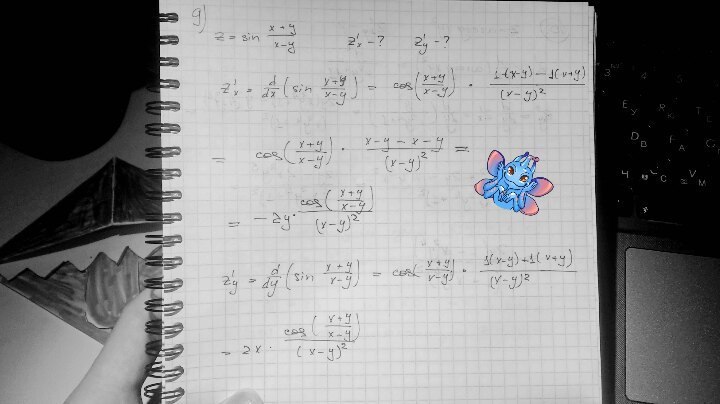 9)
z = sin (x+y)/(x-y)   z'x - ?   z'y - ?
z'x = d/dx (sin (x+y)/(x-y)) = cos((x+y)/(x-y)) · (1·(x-y) - 1(x+y))/(x-y)²
= cos((x+y)/(x-y)) · (x-y-x-y)/(x-y)² =
= -2y · cos((x+y)/(x-y))/(x-y)²
z'y = d/dy (sin (x+y)/(x-y)) = cos((x+y)/(x-y)) · (1(x-y)+1(x+y))/(x-y)²
= 2x · cos((x+y)/(x-y))/(x-y)²